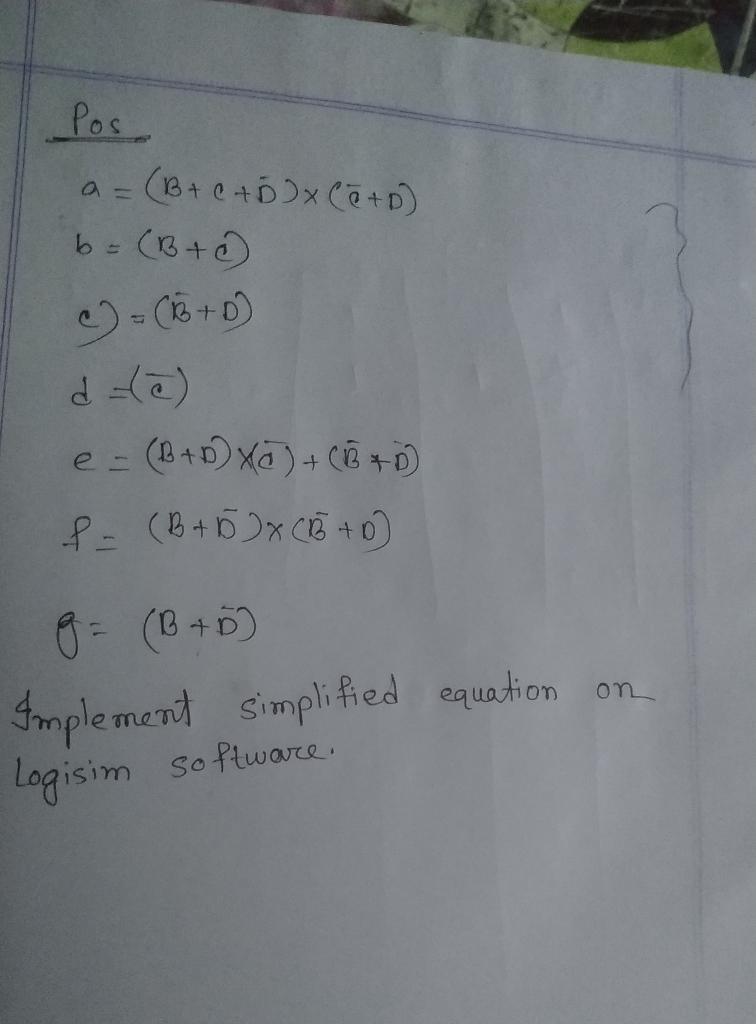 Pos
a = (B + C + D̅) × (C̅ + D)
b = (B + C̅)
c) = (B̅ + D)
d = (C̅)
e = (B + D) × (C̅) + (B̅ + D̅)
f = (B + D̅) × (B̅ + D)
g = (B + D̅)
Implement simplified equation on
Logisim software.